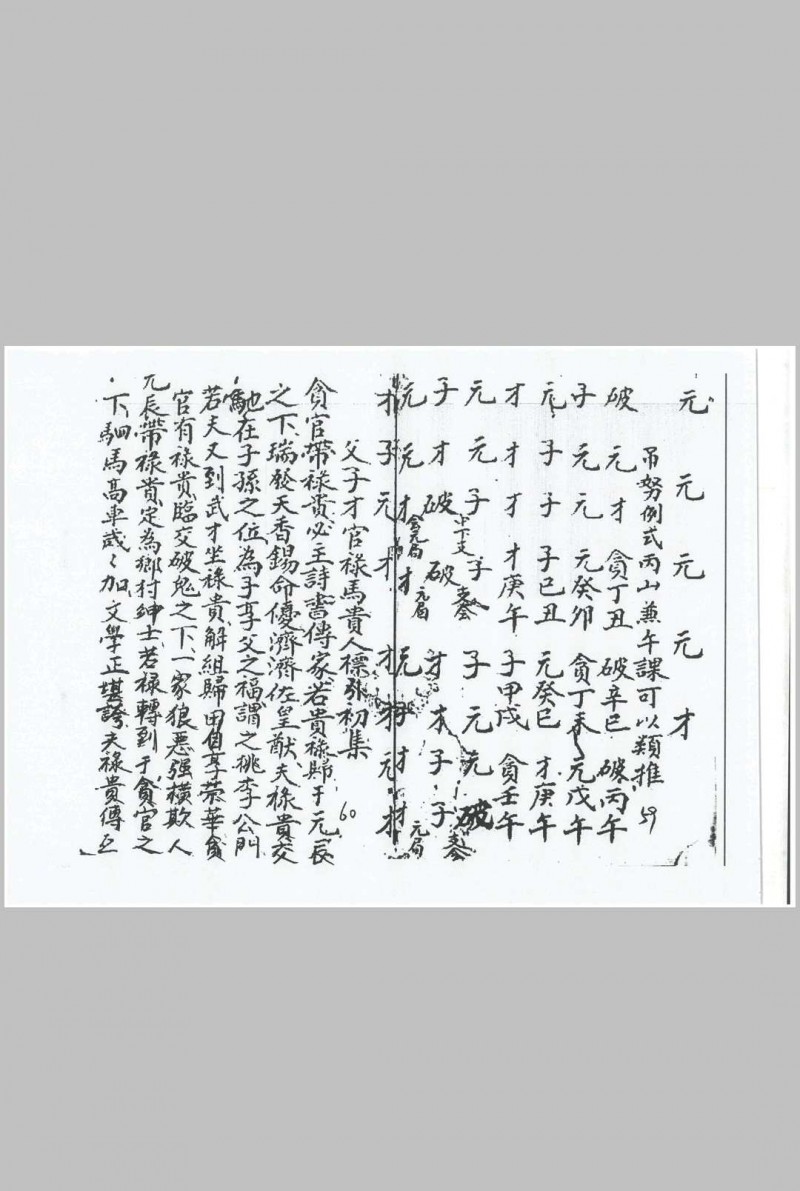 元 元 元 元 才
吊努例式丙山兼午課可以類推 59
破 元 才 貪丁丑 破辛巳 破丙午
子 元 元 元癸卯 貪丁未 元戊午
元 子 子 子巳丑 元癸巳 才庚午
才 才 才 才庚午 子甲戌 貪壬午
元 元 子 中下爻 子 子 元 元 破
子 才 破 破 才 才 子 子
元 元 才 貪元局 才 元局 元 子 才 才 元局
才 子 元 才 才 才 元 才
父子才官祿馬貴人標張初集 60
貪官帶祿貴必主詩書傳家若貴祿歸于元辰
之下瑞啟天香錫命優濟濟佐皇猷夫祿貴交
馳在子孫之位為子享父之福謂之桃李公門
若夫又到武才坐祿貴解組歸田自享荣華貪
官有祿貴臨交破鬼之下一家狼悪强横欺人
元辰帶祿貴定為鄉村紳士若祿轉到于貪官之
下駟馬高車歲々加文學正堪誇夫祿貴傳